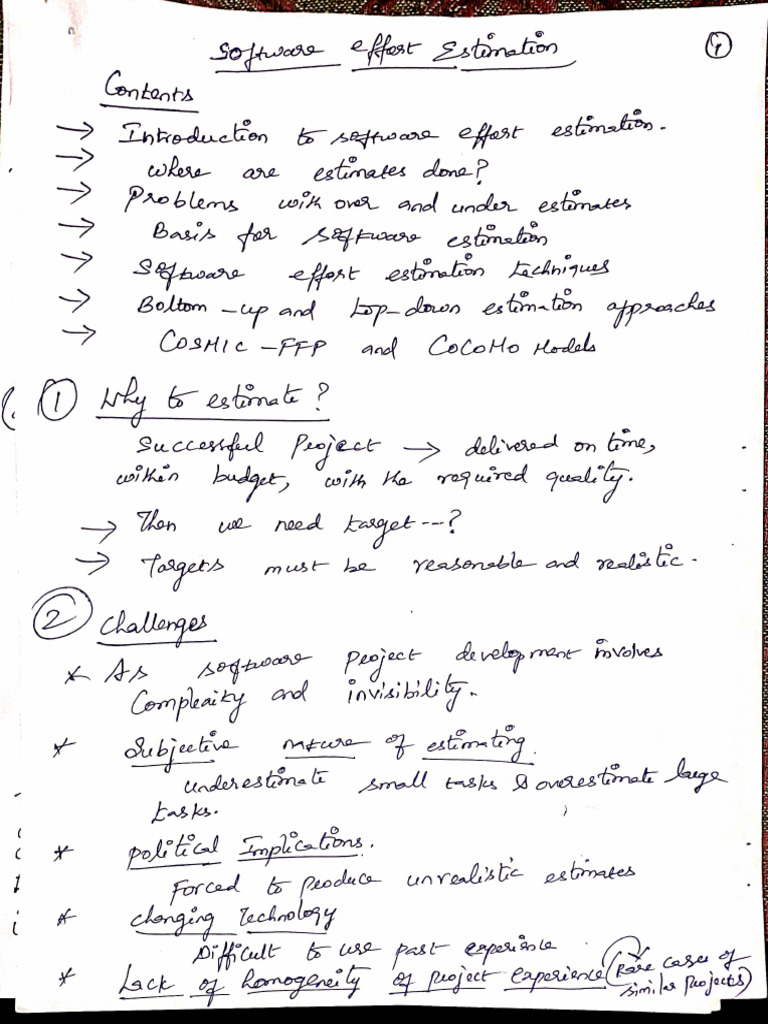 Software effort Estimation
Contents
→ Introduction to software effort estimation.
→ where are estimates done?
→ Problems with over and under estimates
→ Basis for software estimation
→ Software effort estimation techniques
→ Bottom-up and top-down estimation approaches
→ COSMIC-FFP and COCOMO Models
① Why to estimate?
Successful Project → delivered on time,
within budget, with the required quality.
→ Then we need target---?
→ Targets must be reasonable and realistic.
② Challenges
* As software project development involves
Complexity and invisibility.
* Subjective nature of estimating.
underestimate small tasks & overestimate large
tasks.
* Political Implications.
Forced to produce unrealistic estimates
* Changing Technology
Difficult to use past experience
* Lack of homogeneity of project experience (Rare cases of
similar projects)